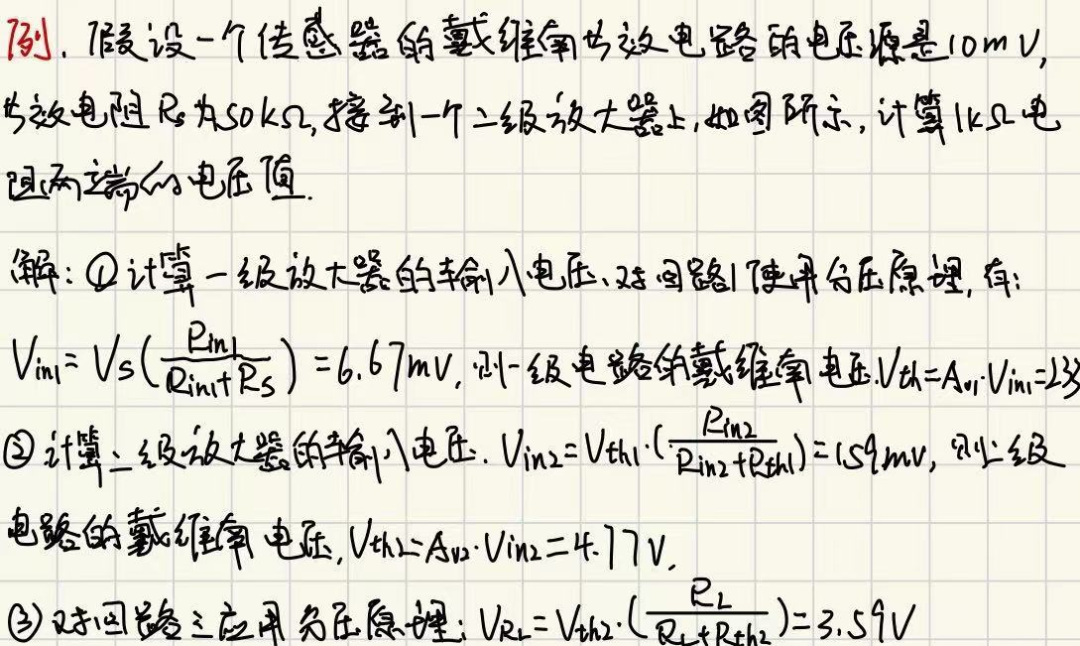 例. 假设一个传感器的戴维南等效电路的电压源是10mV,
等效电阻Rs为50kΩ,接到一个二级放大器上,如图所示,计算1kΩ电
阻两端的电压值.
解:①计算一级放大器的输入电压、对回路1使用分压原理,有:
Vin1=Vs(Rin1/(Rin1+Rs))=6.67mV,则一级电路的戴维南电压.Vth=Av1·Vin1=233
②计算二级放大器的输入电压.Vin2=Vth1·(Rin2/(Rin2+Rth1))=159mv,则二级
电路的戴维南电压,Vth2=Av2·Vin2=4.77V,
③对回路三应用分压原理:VRL=Vth2·(RL/(RL+Rth2))=3.59V